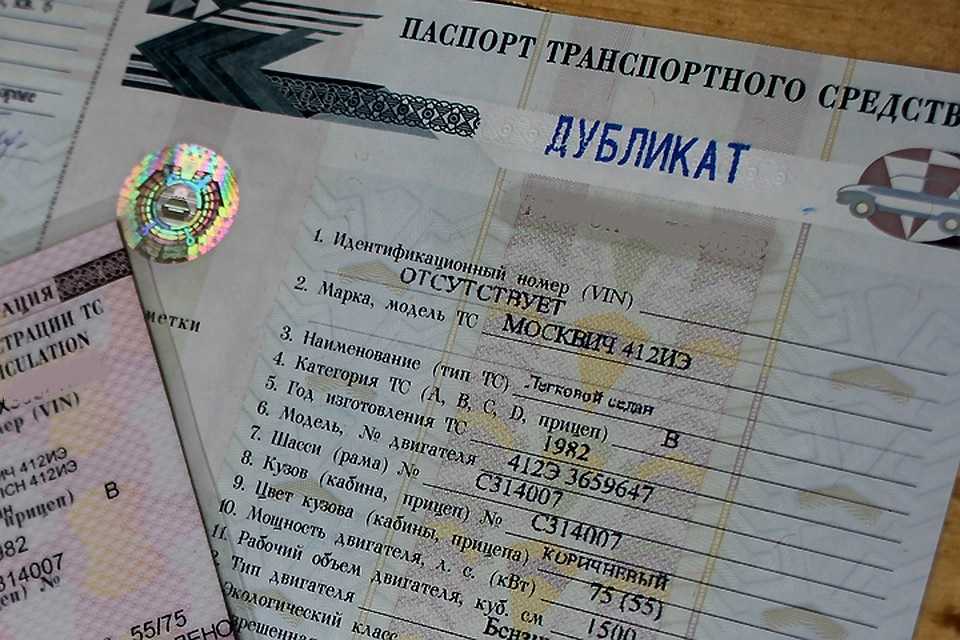 ПАСПОРТ ТРАНСПОРТНОГО СРЕДСТВ
ДУБЛИКАТ
1. Идентификационный номер (VIN)
ОТСУТСТВУЕТ
2. Марка, модель ТС МОСКВИЧ 412ИЭ
3. Наименование (тип ТС) Легковой седан
4. Категория ТС (А, В, С, D, прицеп) В
5. Год изготовления ТС 1982
6. Модель, № двигателя 412Э 3659647
7. Шасси (рама) № С314007
8. Кузов (кабина, прицеп) № С314007
9. Цвет кузова (кабины, прицепа) КОРИЧНЕВЫЙ
10. Мощность двигателя, л. с. (кВт) 75 (55)
11. Рабочий объем двигателя, куб. см 1500
Тип двигателя Бензи
Экологический класс
метки
АЦИЯ
СТРАЦИИ ТС
ICULATION
мер (VIN)
ИЧ 412ИЭ
ICH 412ИЭ
прицеп) В
982
314007
цеп) №
55/75